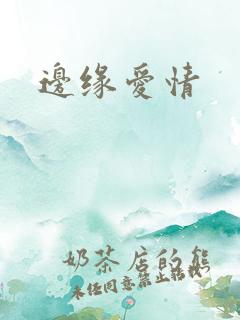 邊缘愛情
奶茶店的熊
未任同意禁止转载